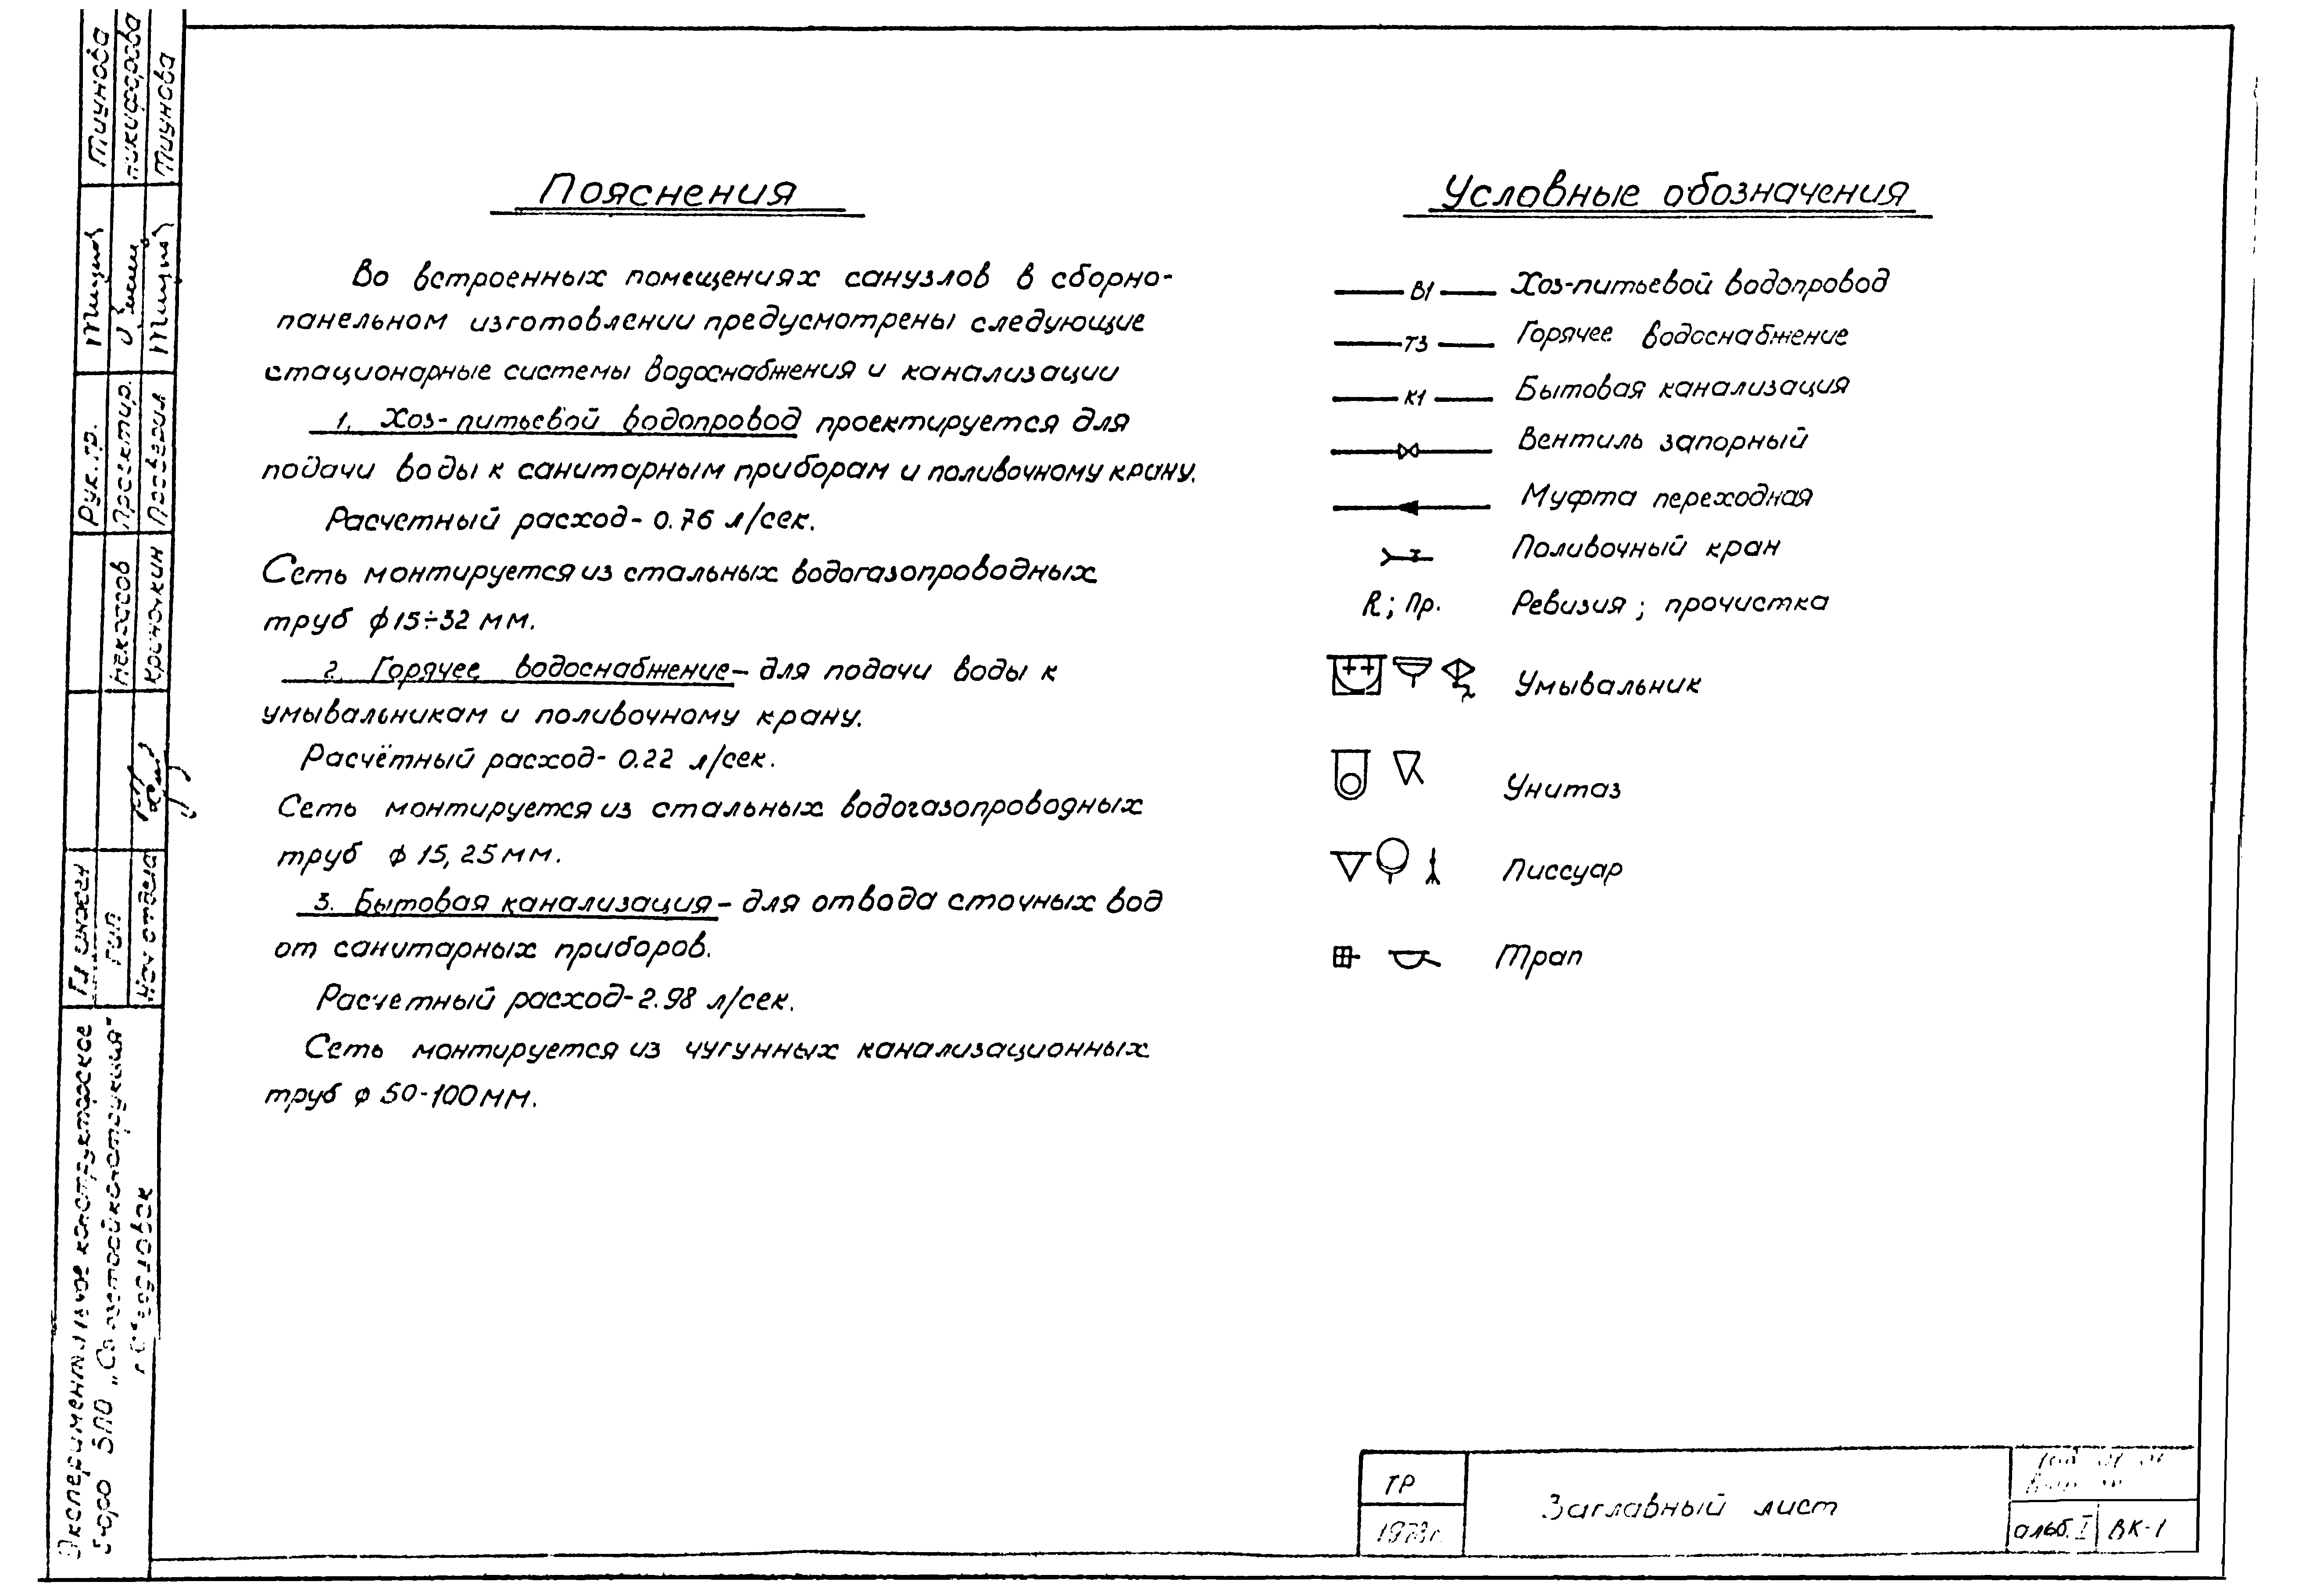 Пояснения
Во встроенных помещениях санузлов в сборно-
панельном изготовлении предусмотрены следующие
стационарные системы водоснабжения и канализации
1. Хоз-питьевой водопровод проектируется для
подачи воды к санитарным приборам и поливочному крану.
Расчетный расход- 0.76 л/сек.
Сеть монтируется из стальных водогазопроводных
труб ф 15÷32 мм.
2. Горячее водоснабжение- для подачи воды к
умывальникам и поливочному крану.
Расчётный расход- 0.22 л/сек.
Сеть монтируется из стальных водогазопроводных
труб ф 15, 25 мм.
3. Бытовая канализация- для отвода сточных вод
от санитарных приборов.
Расчетный расход-2.98 л/сек.
Сеть монтируется из чугунных канализационных
труб ф 50-100 мм.
Условные обозначения
В1 Хоз-питьевой водопровод
Т3 Горячее водоснабжение
К1 Бытовая канализация
Вентиль запорный
Муфта переходная
Поливочный кран
R; Пр. Ревизия; прочистка
Умывальник
Унитаз
Писсуар
Трап
ТР
Заглавный лист
альб. I
ВК-1
Экспериментальное конструкторское
бюро
Гл инжен
ГИП
Нач отдела
Некрасов
Рук. гр.
Проектир.
Проверил
Тиунова
Никифорова
Тиунова